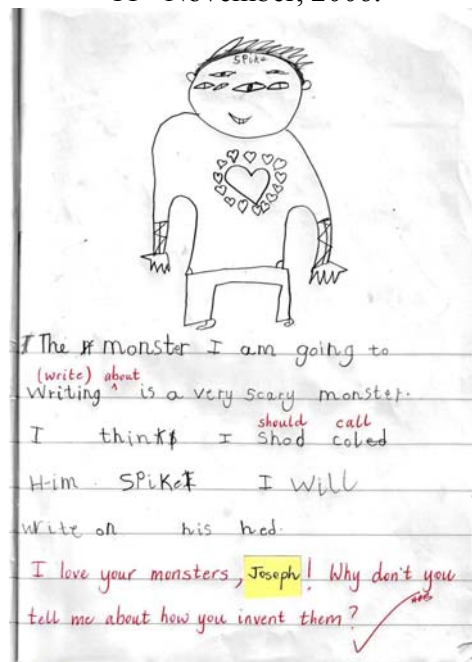 11th November, 2006.
SPike
The monster I am going to
(write) about
Writing ^ is a very scary monster.
should call
I think I shod coled
Him SPiKe I Will
write on his hed.
I love your monsters, Joseph! Why don't you
tell me about how you invent them?